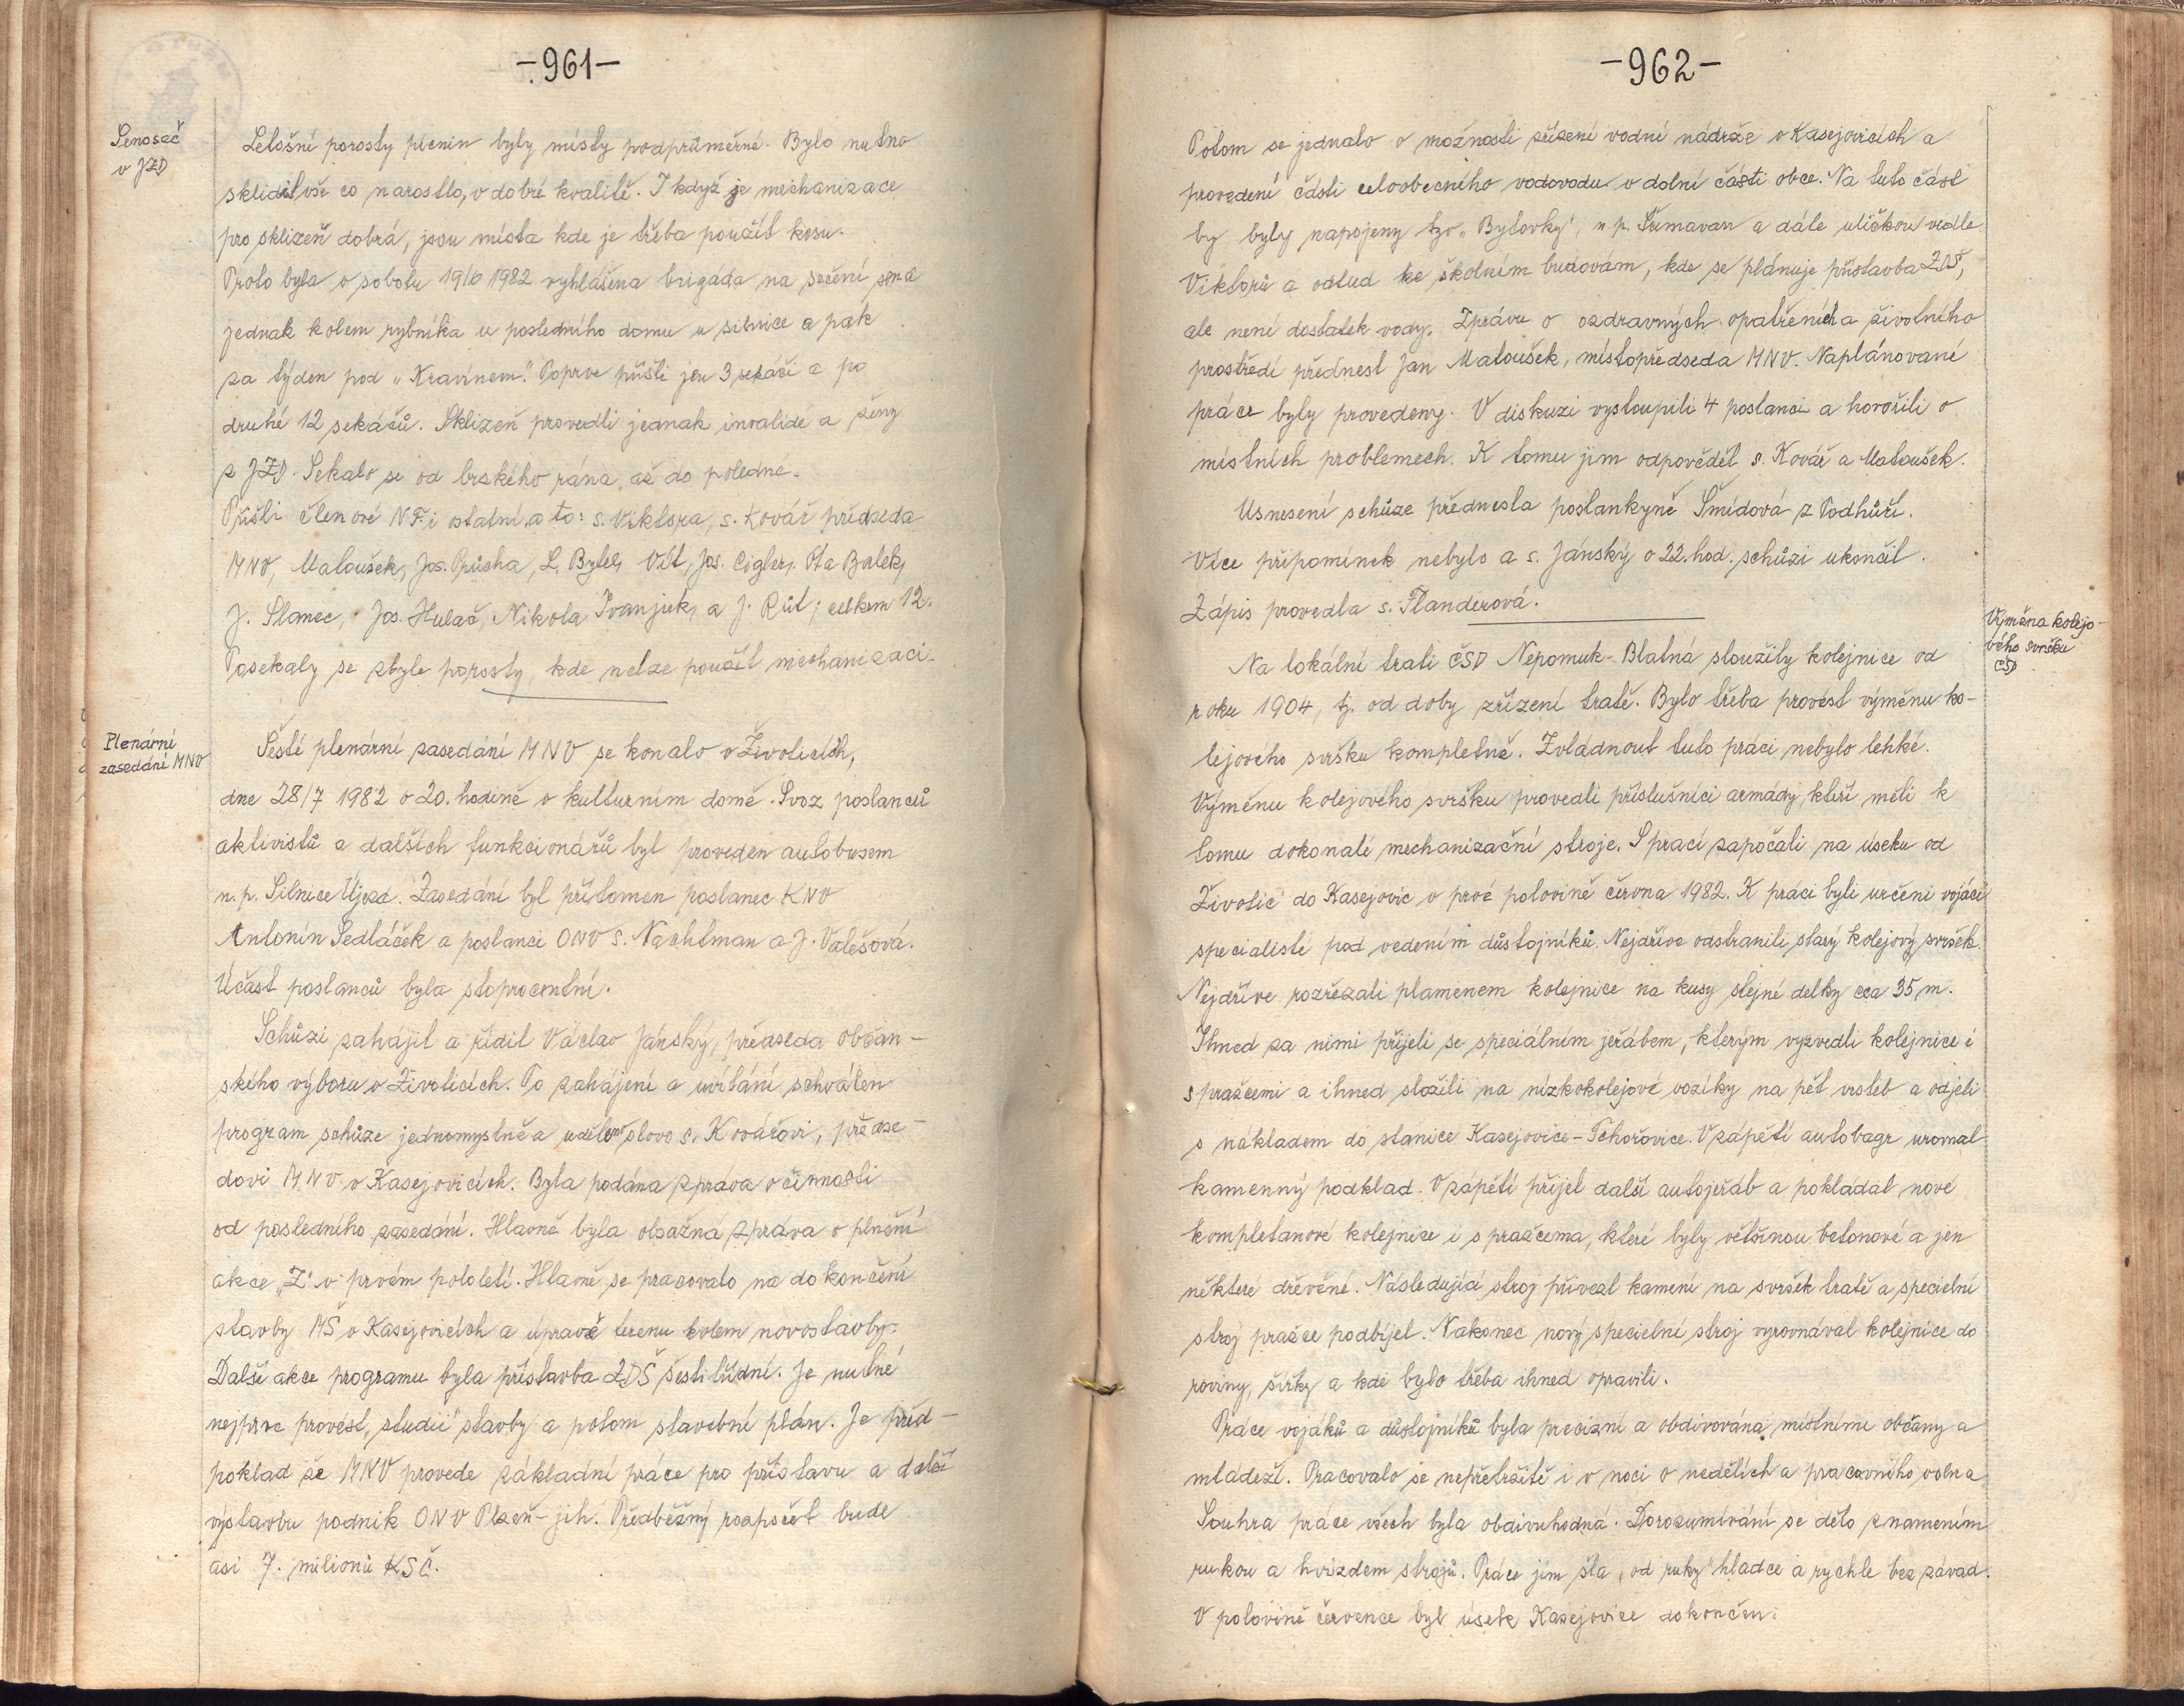 -961-
Senoseč
v JZD
Letošní porosty pícnin byly místy podprůměrné. Bylo nutno
sklidit vše co narostlo, v dobré kvalitě. I když je mechanizace
pro sklizeň dobrá, jsou místa kde je třeba použít kosu.
Proto byla v sobotu 19/6 1982 vyhlášena brigáda na sečení sena
jednak kolem rybníka u posledního domu u silnice a pak
za týden pod „Kravínem". Poprve přišli jen 3 sekáči a po
druhé 12 sekáčů. Sklizeň provedli jednak invalidé a ženy
z JZD. Sekalo se od brského rána až do poledne.
Přišli členové NF. i ostatní a to: s. Viktora, s. Kovář předseda
MNV, Matoušek, Jos. Opůcha, L. Bytel, Vít, Jos. Cigler, Ota Balek,
J. Slanec, Jos. Hulač, Nikola Ivanjuk, a J. Růt, celkem 12.
Posekaly se zbyle porosty, kde nelze použít mechanizaci.
Plenární
zasedání MNV
Šesté plenární zasedání MNV se konalo v Životicích,
dne 28/7 1982 o 20. hodině v kulturním domě. Svoz poslanců
aktivistů a dalších funkcionářů byl proveden autobusem
n.p. Silnice Újezd. Zasedání byl přítomen poslanec KNV
Antonín Sedláček a poslanci ONV S. Nachtman a J. Valešová.
Účast poslanců byla stoprocentní.
Schůzi zahájil a řídil Václav Jánský, předseda občan-
ského výboru v Životicích. Po zahájení a uvítání schválen
program schůze jednomyslně a udělено slovo s. Kovářovi, předse-
dovi MNV v Kasejovicích. Byla podána zpráva o činnosti
od posledního zasedání. Hlavně byla obsažná zpráva o plnění
akce „Z" v prvém pololetí. Hlavně se pracovalo na dokončení
stavby MŠ v Kasejovicích a úpravě terenu kolem novostavby.
Další akce programu byla přístavba ZDŠ šestitřídní. Je nutné
nejprve provést „studii" stavby a potom stavební plán. Je před-
poklad že MNV provede základní práce pro přístavu a další
výstavbu podnik ONV Plzeň-jih. Předběžný rozpočet bude
asi 7. milionů KSČ.
-962-
Potom se jednalo o možnosti zřízení vodní nádrže v Kasejovicích a
provedení části celoobecního vodovodu v dolní části obce. Na tuto část
by byly napojeny tzv. „Bytovky", n.p. Šumavan a dále uličkou vedle
Viktorů a odtud ke školním budovám, kde se plánuje přístavba ZDŠ,
ale není dostatek vody. Zprávu o ozdravných opatřeních a životního
prostředí přednesl Jan Matoušek, místopředseda MNV. Naplánované
práce byly provedeny. V diskuzi vystoupili 4 poslanci a hovořili o
místních problemech. K tomu jim odpověděl s. Kovář a Matoušek.
Usnesení schůze přednesla poslankyně Šmídová z Podhůří.
Více připomínek nebylo a s. Jánský o 22. hod. schůzi ukončil.
Zápis provedla s. Flanderová.
Výměna kolejo-
vého svršku
ČSD
Na lokální trati ČSD Nepomuk-Blatná sloužily kolejnice od
roku 1904, tj. od doby zřízení tratě. Bylo třeba provést výměnu ko-
lejového svršku kompletně. Zvládnout tuto práci nebylo lehké.
Výměnu kolejového svršku provedli příslušníci armády, kteří měli k
tomu dokonalé mechanizační stroje. S prací započali na úseku od
Životic do Kasejovic v prvé polovině června 1982. K praci byli určeni vojáci
specialisté pod vedením důstojníků. Nejdříve odstranili starý kolejový svršek.
Nejdříve rozřezali plamenem kolejnice na kusy stejné delky cca 35 m.
Ihned za nimi přijeli se speciálním jeřábem, kterým vyzvedli kolejnice i
s pražcemi a ihned složili na nízkokolejové vozíky na pět vrsteb a odjeli
s nákladem do stanice Kasejovice-Tchořovice. V zápětí autobagr urovnal
kamenný podklad. V zápětí přijel další autojeřáb a pokládal nové
kompletanové kolejnice i s pražcema, které byly většinou betonové a jen
některé dřevěné. Následující stroj přivezl kamení na svršek tratě a specielní
stroj pražce podbíjel. Nakonec nový specielní stroj vyrovnával kolejnice do
roviny, šířky a kde bylo třeba ihned opravili.
Práce vojáků a důstojníků byla precizní a obdivována místními občany a
mládeží. Pracovalo se nepřetržitě i v noci o nedělích a pracovního volna
Souhra práce všech byla obdivuhodná. Dorozumívání se dělo znamením
rukou a hvizdem strojů. Práce jim šla „od ruky" hladce a rychle bez závad.
V polovině července byl úsek Kasejovice dokončen.